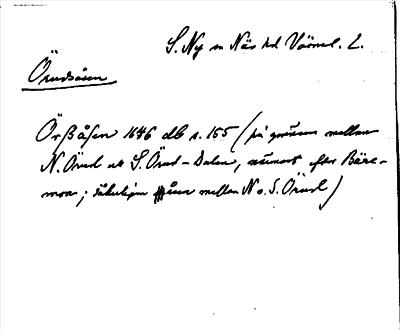 S. Ny sn Näs hd Värml. L.
Örudsåsen
Örßåsen 1646 db s. 155 (på gränsen mellan
N. Örud och S. Örud-Dalen, närmast efter Bäre-
mon; således åsen mellan N o. S. Örud)